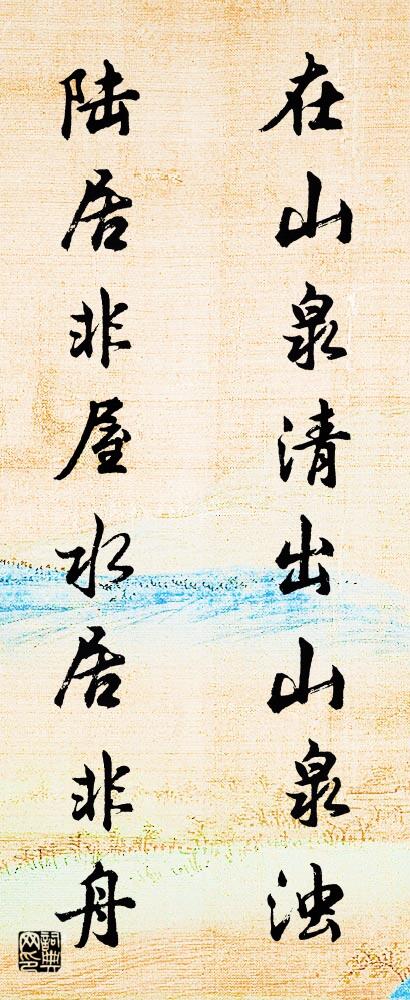 在山泉清出山泉浊
陆居非屋水居非舟
詞典网印